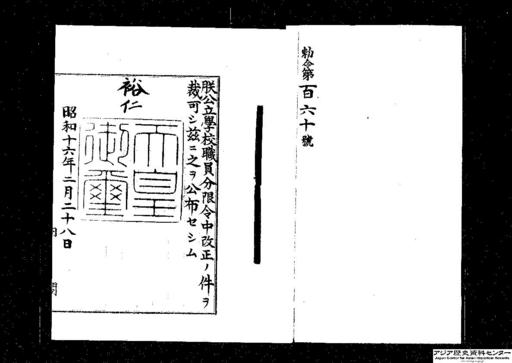 勅令第百六十號
朕公立學校職員分限令中改正ノ件ヲ
裁可シ茲ニ之ヲ公布セシム
裕仁
天皇
御璽
昭和十六年二月二十八日
アジア歴史資料センター
Japan Center for Asian Historical Records